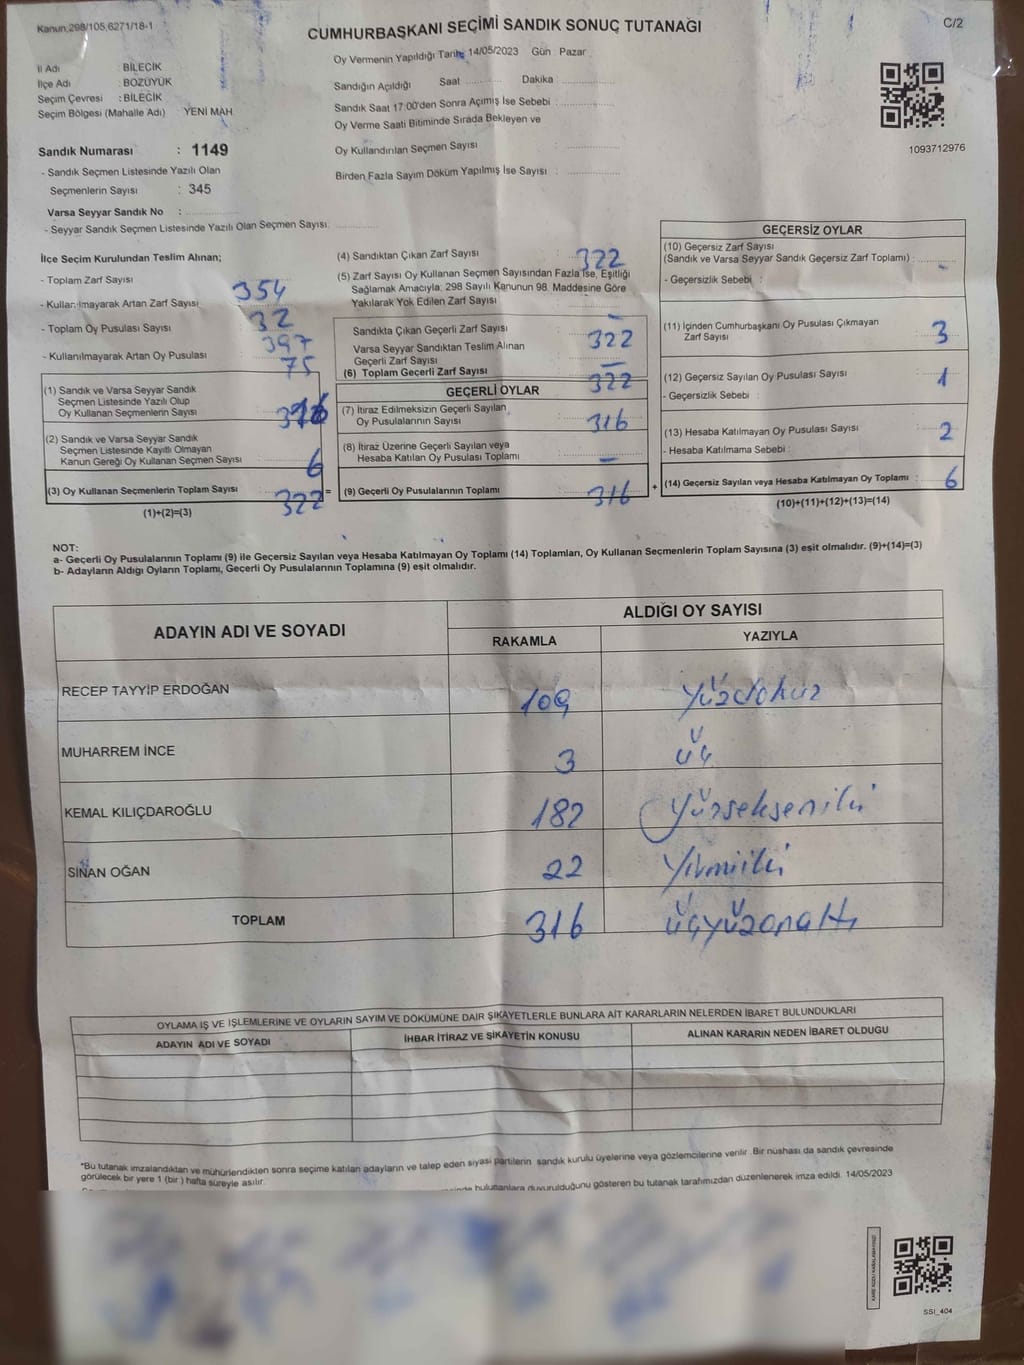 Kanun:298/105,6271/18-1
CUMHURBAŞKANI SEÇİMİ SANDIK SONUÇ TUTANAĞI
C/2
Oy Vermenin Yapıldığı Tarih: 14/05/2023 Gün : Pazar
İl Adı : BİLECİK
İlçe Adı : BOZÜYÜK
Seçim Çevresi : BİLECİK
Seçim Bölgesi (Mahalle Adı) YENİ MAH
Sandığın Açıldığı Saat Dakika
Sandık Saat 17:00'den Sonra Açımış İse Sebebi :
Oy Verme Saati Bitiminde Sırada Bekleyen ve
Oy Kullandırılan Seçmen Sayısı :
Birden Fazla Sayım Döküm Yapılmış İse Sayısı :
1093712976
Sandık Numarası : 1149
- Sandık Seçmen Listesinde Yazılı Olan
Seçmenlerin Sayısı : 345
Varsa Seyyar Sandık No :
- Seyyar Sandık Seçmen Listesinde Yazılı Olan Seçmen Sayısı:
İlçe Seçim Kurulundan Teslim Alınan;
- Toplam Zarf Sayısı 354
- Kullanılmayarak Artan Zarf Sayısı 32
- Toplam Oy Pusulası Sayısı 397
- Kullanılmayarak Artan Oy Pusulası 75
(1) Sandık ve Varsa Seyyar Sandık
Seçmen Listesinde Yazılı Olup
Oy Kullanan Seçmenlerin Sayısı
(2) Sandık ve Varsa Seyyar Sandık
Seçmen Listesinde Kayıtlı Olmayan
Kanun Gereği Oy Kullanan Seçmen Sayısı 6
(3) Oy Kullanan Seçmenlerin Toplam Sayısı 322 =
(1)+(2)=(3)
(4) Sandıktan Çıkan Zarf Sayısı : 322
(5) Zarf Sayısı Oy Kullanan Seçmen Sayısından Fazla İse, Eşitliği
Sağlamak Amacıyla; 298 Sayılı Kanunun 98. Maddesine Göre
Yakılarak Yok Edilen Zarf Sayısı : -
Sandıkta Çıkan Geçerli Zarf Sayısı : 322
Varsa Seyyar Sandıktan Teslim Alınan
Geçerli Zarf Sayısı : -
(6) Toplam Geçerli Zarf Sayısı : 322
GEÇERLİ OYLAR
(7) İtiraz Edilmeksizin Geçerli Sayılan
Oy Pusulalarının Sayısı : 316
(8) İtiraz Üzerine Geçerli Sayılan veya
Hesaba Katılan Oy Pusulası Toplamı : -
(9) Geçerli Oy Pusulalarının Toplamı : 316 +
GEÇERSİZ OYLAR
(10) Geçersiz Zarf Sayısı
(Sandık ve Varsa Seyyar Sandık Geçersiz Zarf Toplamı) : -
- Geçersizlik Sebebi :
(11) İçinden Cumhurbaşkanı Oy Pusulası Çıkmayan
Zarf Sayısı : 3
(12) Geçersiz Sayılan Oy Pusulası Sayısı : 1
- Geçersizlik Sebebi :
(13) Hesaba Katılmayan Oy Pusulası Sayısı : 2
- Hesaba Katılmama Sebebi :
(14) Geçersiz Sayılan veya Hesaba Katılmayan Oy Toplamı : 6
(10)+(11)+(12)+(13)=(14)
NOT:
a- Geçerli Oy Pusulalarının Toplamı (9) ile Geçersiz Sayılan veya Hesaba Katılmayan Oy Toplamı (14) Toplamları, Oy Kullanan Seçmenlerin Toplam Sayısına (3) eşit olmalıdır. (9)+(14)=(3)
b- Adayların Aldığı Oyların Toplamı, Geçerli Oy Pusulalarının Toplamına (9) eşit olmalıdır.
ADAYIN ADI VE SOYADI
ALDIĞI OY SAYISI
RAKAMLA YAZIYLA
RECEP TAYYİP ERDOĞAN 109 Yüzdokuz
MUHARREM İNCE 3 üç
KEMAL KILIÇDAROĞLU 182 Yürsekseniki
SİNAN OĞAN 22 Yirmiiki
TOPLAM 316 üçyüzonaltı
OYLAMA İŞ VE İŞLEMLERİNE VE OYLARIN SAYIM VE DÖKÜMÜNE DAİR ŞİKAYETLERLE BUNLARA AİT KARARLARIN NELERDEN İBARET BULUNDUKLARI
ADAYIN ADI VE SOYADI İHBAR İTİRAZ VE ŞİKAYETİN KONUSU ALINAN KARARIN NEDEN İBARET OLDUĞU
*Bu tutanak imzalandıktan ve mühürlendikten sonra seçime katılan adayların ve talep eden siyasi partilerin sandık kurulu üyelerine veya gözlemcilerine verilir. Bir nüshası da sandık çevresinde
görülecek bir yere 1 (bir) hafta süreyle asılır.
bulunanlara duyurulduğunu gösteren bu tutanak tarafımızdan düzenlenerek imza edildi. 14/05/2023
SSI_404